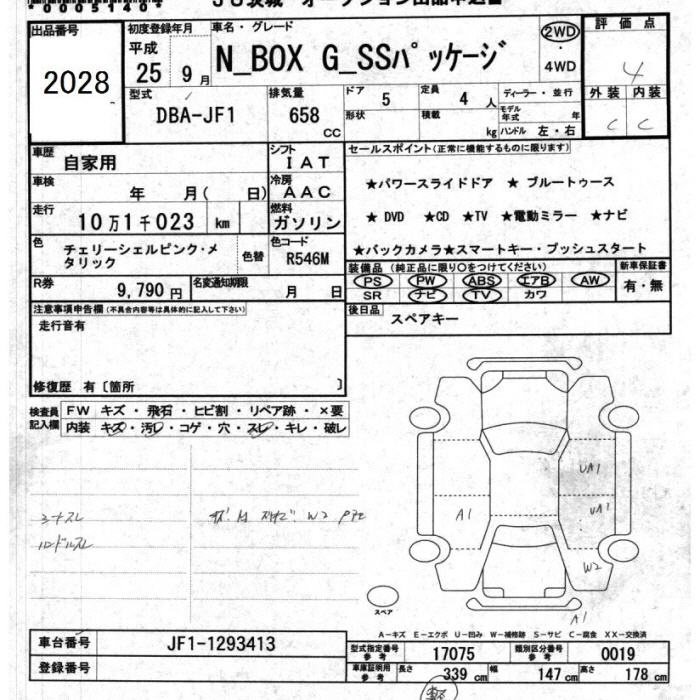 *00051404*
JU茨城 オークション出品申込書
出品番号
2028
初度登録年月
平成
25 9月
車名・グレード
N_BOX G_SSパッケージ
2WD
・
4WD
評価点
4
外装 内装
C C
型式
DBA-JF1
排気量
658
CC
ドア
5
定員
4 人
ディーラー・並行
モデル年式 年
形状
積載
kg
ハンドル 左・右
車歴
自家用
シフト
IAT
車検
年 月( 日)
冷房
AAC
走行
10万1千023 km
燃料
ガソリン
色
チェリーシェルピンク・メタリック
色替
色コード
R546M
R券
9,790円
名変通知期限
月 日
セールスポイント(正常に機能するものに限ります)
★パワースライドドア ★ ブルートゥース
★ DVD ★CD ★TV ★電動ミラー ★ナビ
★バックカメラ★スマートキー・プッシュスタート
装備品(純正品に限り○をつけてください)
PS PW ABS エアB AW
SR ナビ TV カワ
新車保証書
有・無
後日品
スペアキー
注意事項申告欄(不具合内容等は具体的に記入して下さい)
走行音有
修復歴 有〔箇所 〕
検査員記入欄
FW キズ・飛石・ヒビ割・リペア跡・×要
内装 キズ・汚レ・コゲ・穴・スレ・キレ・破レ
シートスレ
ハンドルスレ
W2
A1
UA1
UA1
W2
A1
スペア
A-キズ E-エクボ U-凹み W-補修跡 S-サビ C-腐食 XX-交換済
車台番号
JF1-1293413
登録番号
型式指定番号
参考
17075
類別区分番号
参考
0019
車庫証明用
参考
長さ 339 cm 幅 147 cm 高さ 178 cm
軽